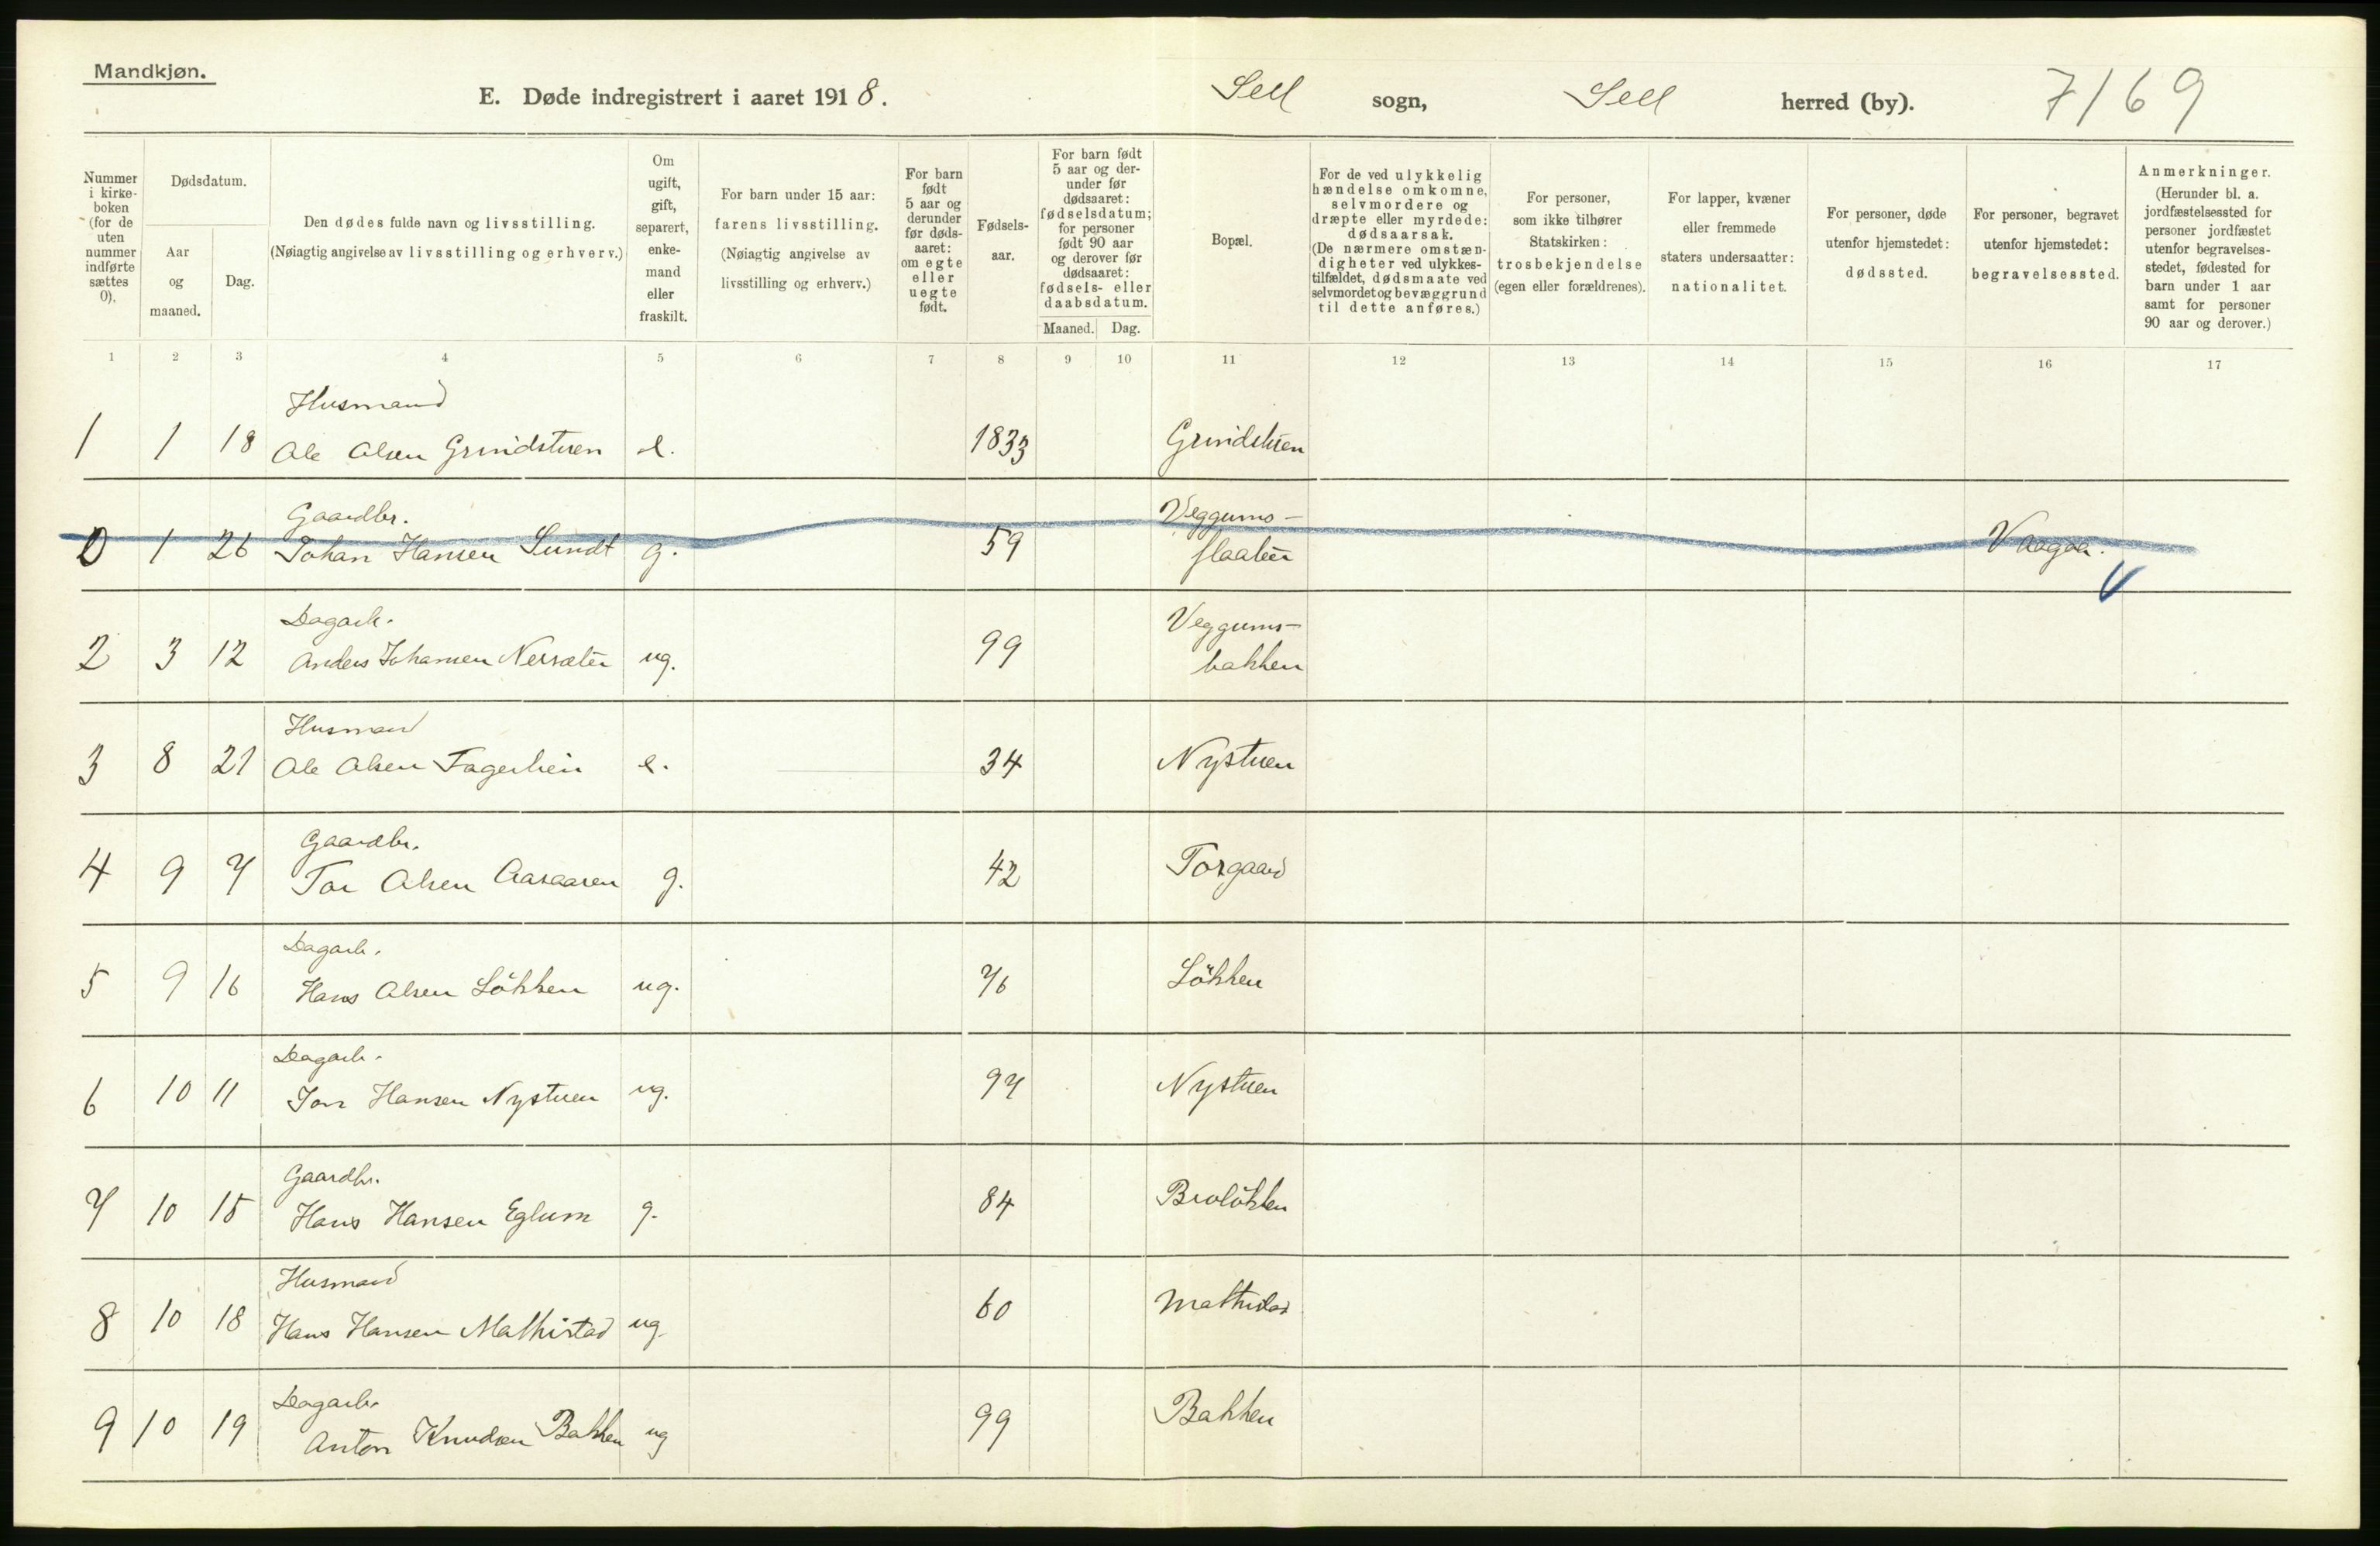 Mandkjøn.
E. Døde indregistrert i aaret 1918. Sell sogn, Sell herred (by). 7/69
Nummer i kirke-boken (for de uten nummer indførte sættes 0).
Dødsdatum.
Aar og maaned.
Dag.
Den dødes fulde navn og livsstilling.
(Nøiagtig angivelse av livsstilling og erhverv.)
Om ugift, gift, separert, enke-mand eller fraskilt.
For barn under 15 aar:
farens livsstilling.
(Nøiagtig angivelse av livsstilling og erhverv.)
For barn født 5 aar og derunder før døds-aaret: om egte eller uegte født.
Fødsels-aar.
For barn født 5 aar og der-under før dødsaaret: fødselsdatum; for personer født 90 aar og derover før dødsaaret: fødsels- eller daabsdatum.
Maaned. Dag.
Bopæl.
For de ved ulykkelig hændelse omkomne, selvmordere og dræpte eller myrdede: dødsaarsak.
(De nærmere omstæn-digheter ved ulykkes-tilfældet, dødsmaate ved selvmordet og bevæggrund til dette anføres.)
For personer, som ikke tilhører Statskirken:
trosbekjendelse
(egen eller forældrenes).
For lapper, kvæner eller fremmede staters undersaatter:
nationalitet.
For personer, døde utenfor hjemstedet:
dødssted.
For personer, begravet utenfor hjemstedet:
begravelsessted.
Anmerkninger.
(Herunder bl. a. jordfæstelsessted for personer jordfæstet utenfor begravelses-stedet, fødested for barn under 1 aar samt for personer 90 aar og derover.)
1 2 3 4 5 6 7 8 9 10 11 12 13 14 15 16 17
Husmand
1 1 18 Ole Olsen Grindstuen e. 1833 Grindstuen
Gaardbr. Veggums-
0 1 26 Johan Hansen Sundt g. 59 flaaten Vaagaa.
Dagarb. Veggums-
2 3 12 Anders Johansen Nersæter ug. 99 bakken
Husmand
3 8 21 Ole Olsen Fagerhein e. 34 Nystuen
Gaardbr.
4 9 7 Tor Olsen Aasaaren g. 42 Torgaard
Dagarb.
5 9 16 Hans Olsen Løkken ug. 76 Løkken
Dagarb.
6 10 11 Jon Hansen Nystuen ug. 97 Nystuen
Gaardbr.
7 10 15 Hans Hansen Eglum g. 84 Broløkken
Husmand
8 10 18 Hans Hansen Mathistad ug. 60 Mathistad
Dagarb.
9 10 19 Anton Knudsen Bakken ug 99 Bakken